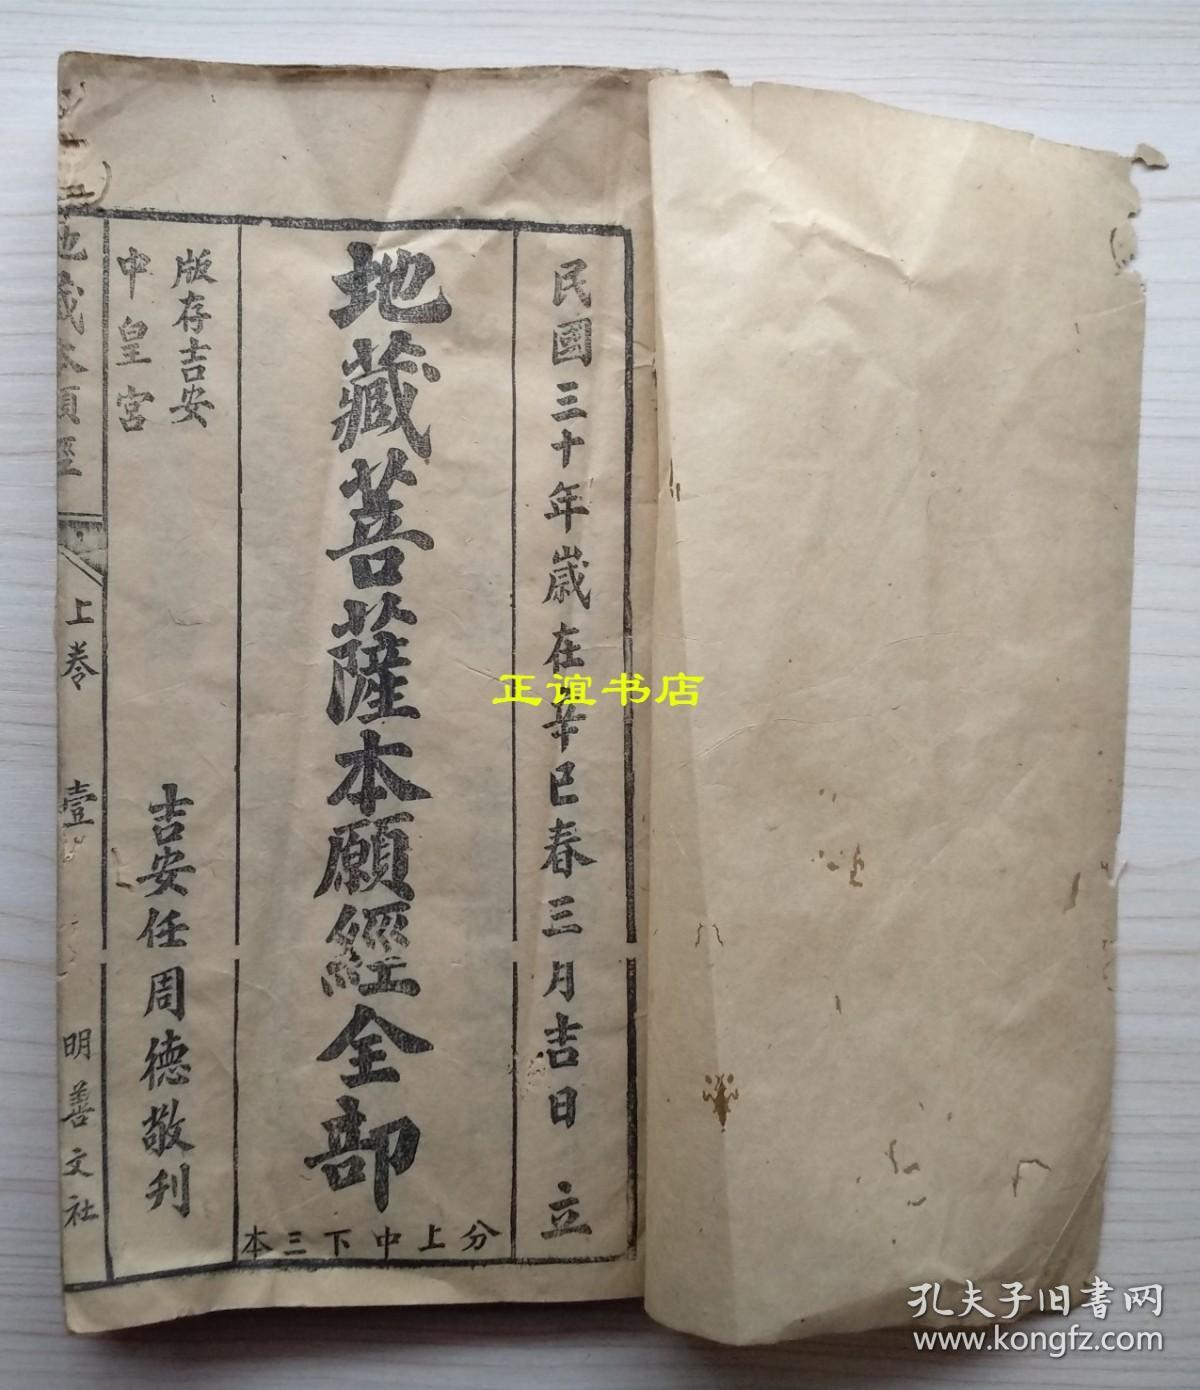 民國三十年歲在辛巳春三月吉日 立
地藏菩薩本願經全部
分上中下三本
版存吉安
中皇宮
吉安任周德敬刊
地藏本願經
上卷
壹
明善文社
正谊书店
孔夫子旧書网
www.kongfz.com